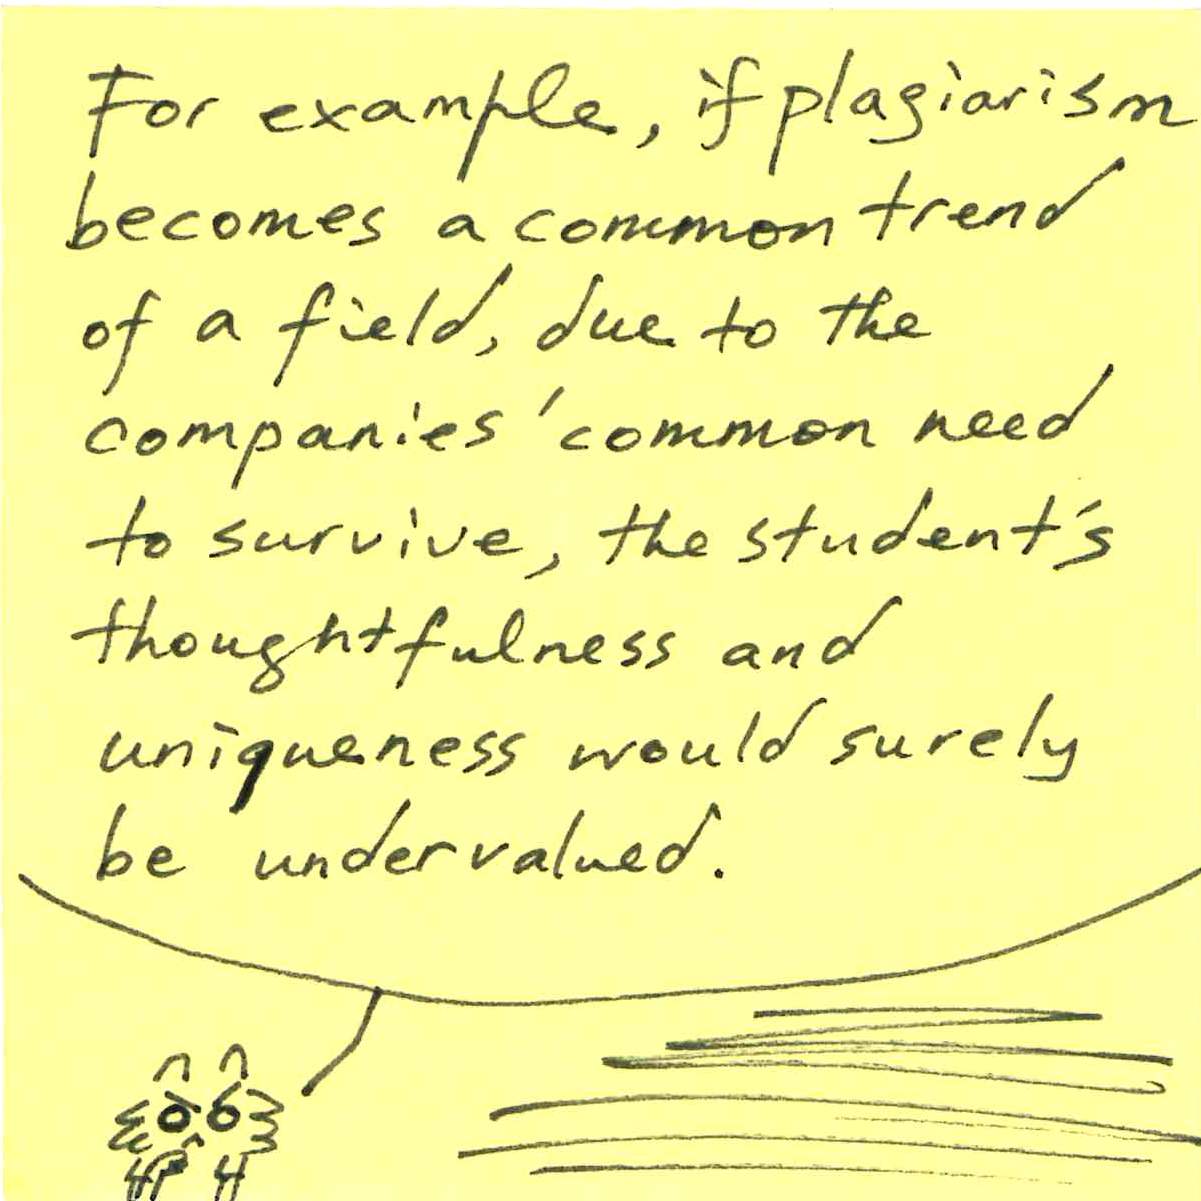 For example, if plagiarism
becomes a common trend
of a field, due to the
companies' common need
to survive, the student's
thoughtfulness and
uniqueness would surely
be undervalued.